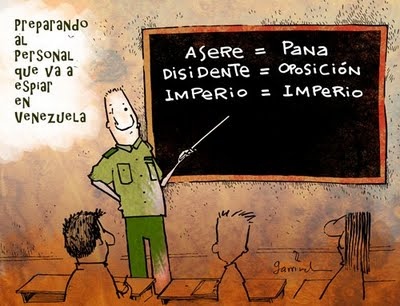 Preparando
al
personal
que va a
espiar
en
Venezuela
ASERE = PANA
DISIDENTE = OPOSICIÓN
IMPERIO = IMPERIO